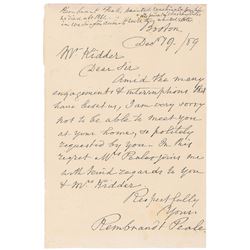 Rembrandt Peale, painted Washington
Boston
Decr 19/59
Mr Kidder
Dear Sir
Amid the many
engagements & interruptions that
have beset us, I am very sorry
not to be able to meet you
at your home, so politely
requested by you. In this
regret Mrs Peale joins me
with kind regards to you
& Mrs Kidder
Respectfully
Yours
Rembrandt Peale